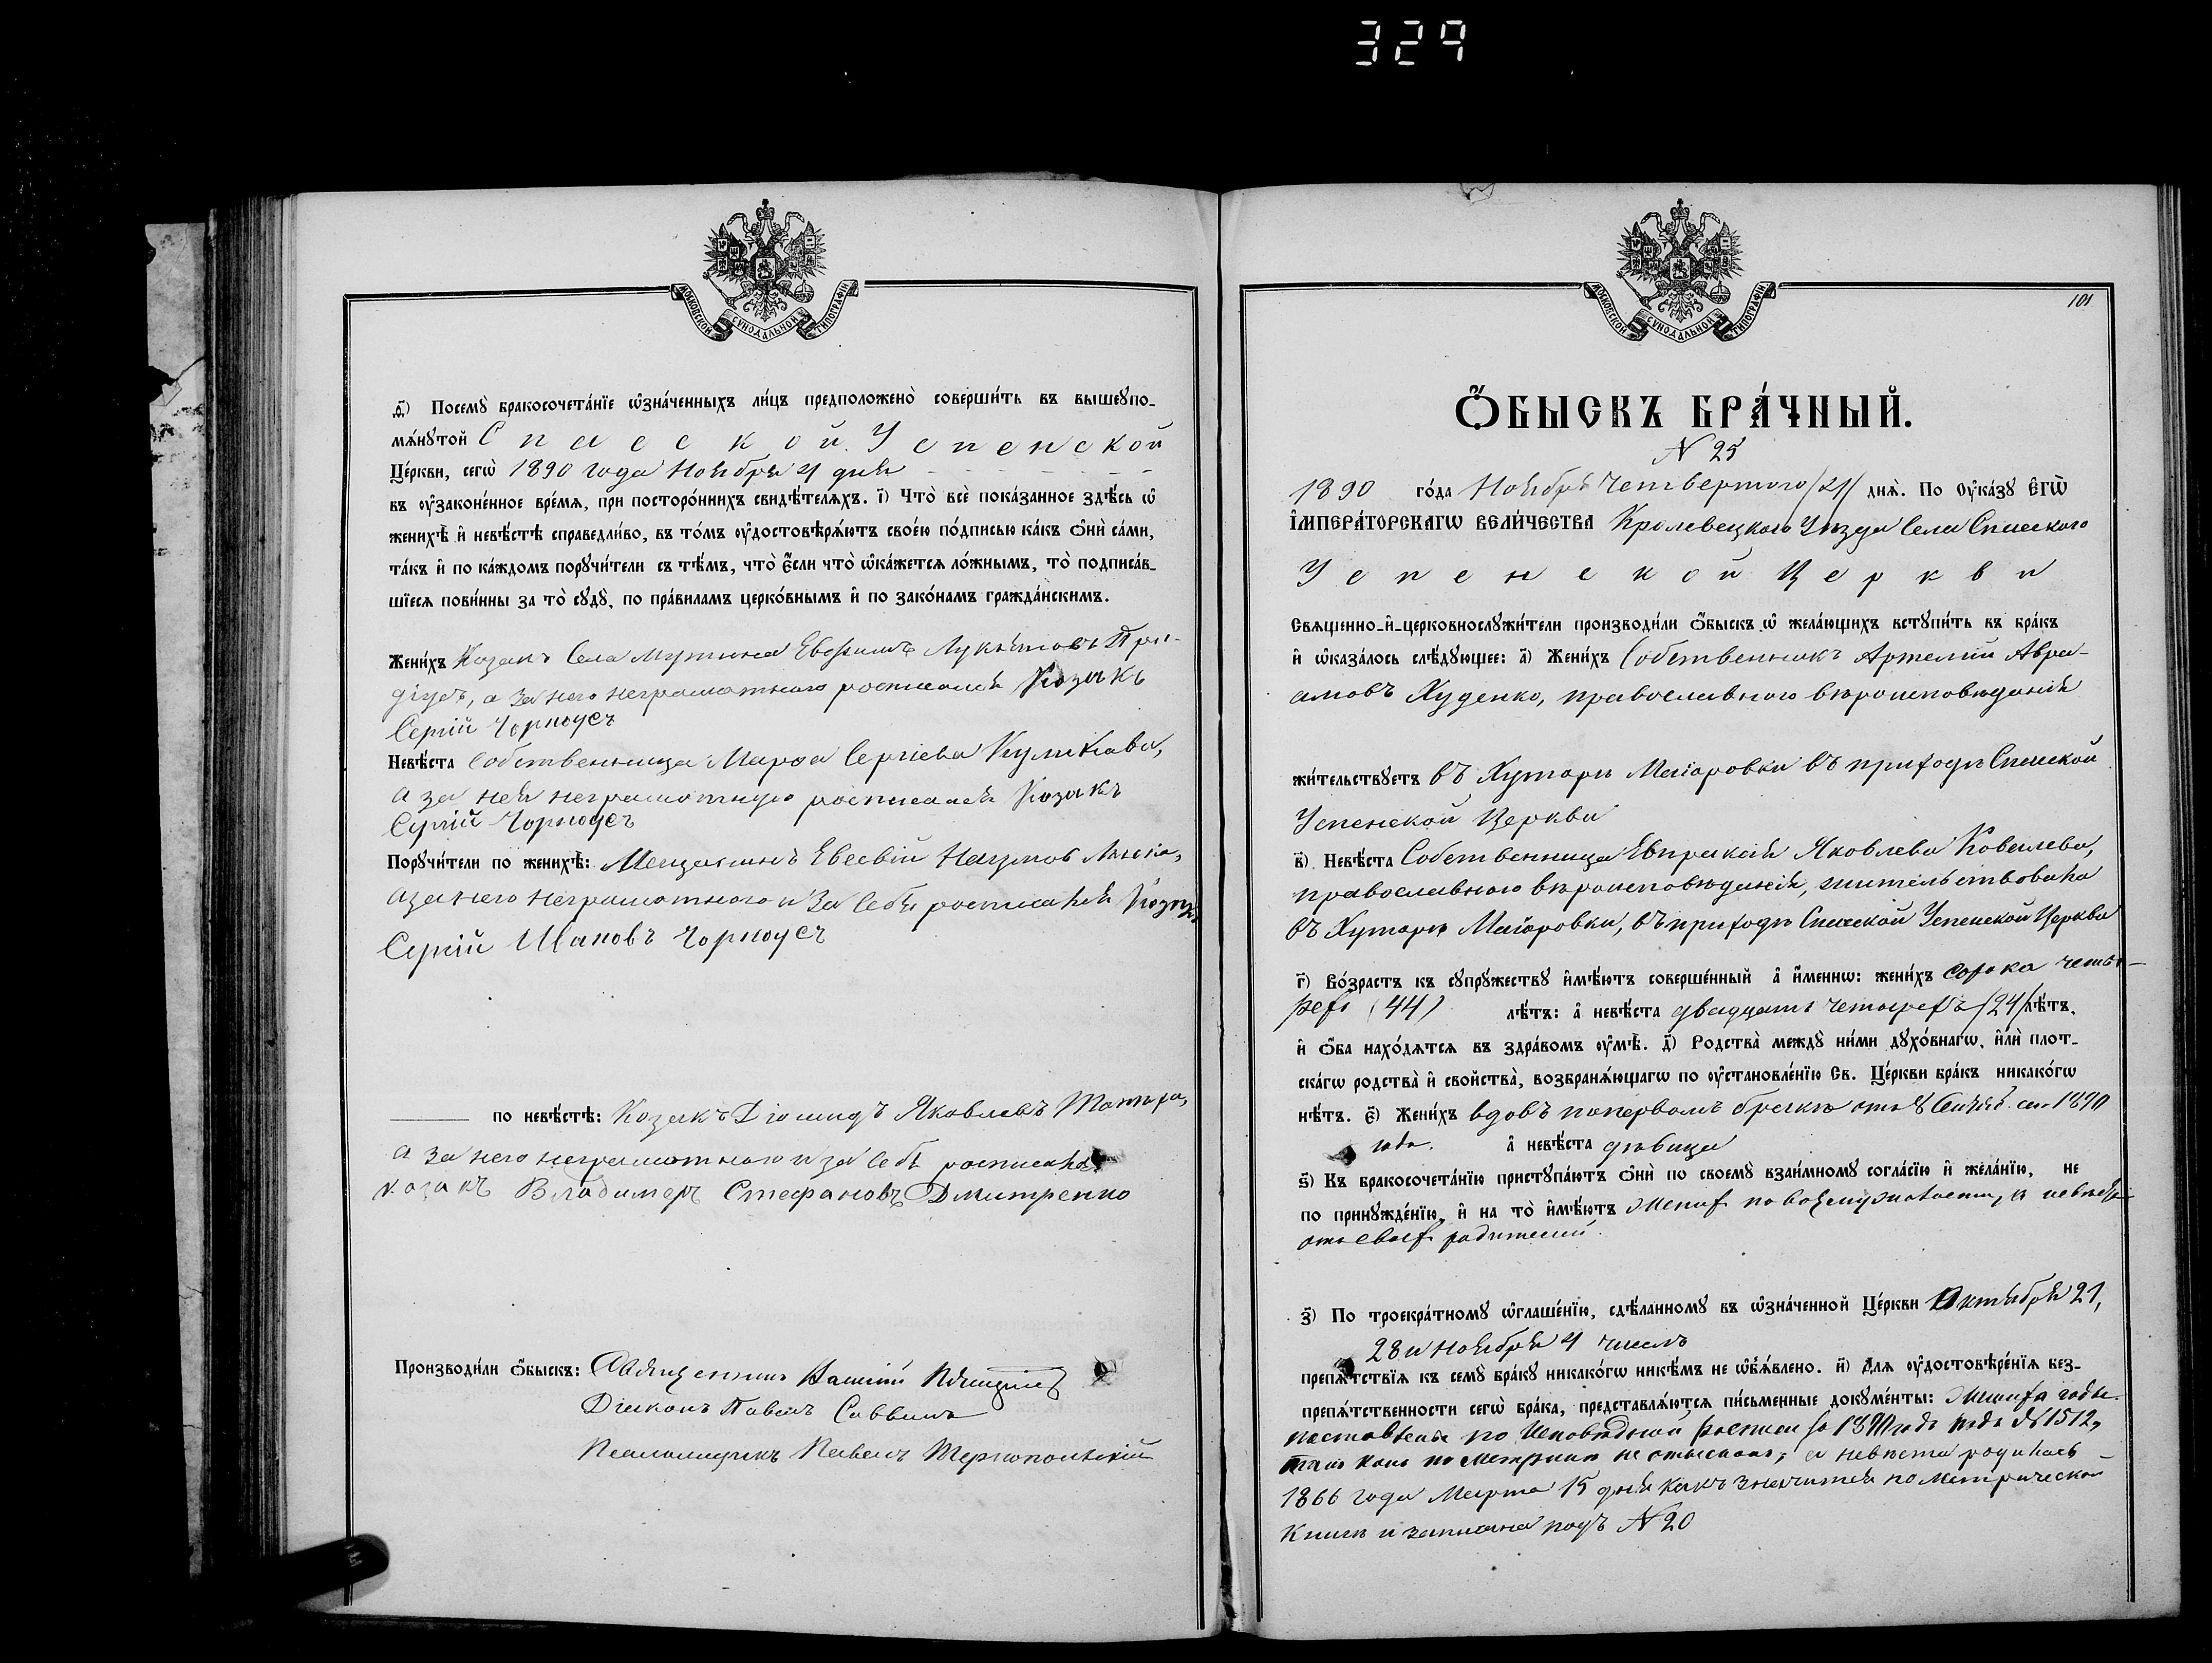 329
МОСКОВСКОЙ СУНОДАЛЬНОЙ ТИПОГРАФІИ
д҃) Посемꙋ̀ бракосочета́нїе ѡ҆зна́ченныхъ ли́цъ предположено̀ соверши́ть въ вышеꙋпо-
мѧ́нꙋтой Спасской Успенской
Це́ркви, сегѡ̀ 1890 года Ноября 4 дня
въ ᲂу҆зако́ненное вре́мѧ, при посторо́ннихъ свидѣ́телѧхъ. і҃) Что̀ всѐ пока́занное здѣ́сь ѡ҆
женихѣ̀ и҆ невѣ́стѣ справедли́во, въ то́мъ ᲂу҆достовѣрѧ́ютъ свое́ю по́дписью ка́къ ѻ҆нѝ са́ми,
та́къ и҆ по ка́ждомъ порꙋчи́тели съ тѣ́мъ, что̀ є҆́сли что̀ ѡ҆ка́жетсѧ ло́жнымъ, то̀ подписа́в-
шїесѧ пови́нны за то̀ сꙋдꙋ̀, по пра́виламъ церко́внымъ и҆ по зако́намъ гражда́нскимъ.
Жени́хъ Козакъ Села Мутина Евфимъ Лукьяновъ При-
а за него неграмотного росписался Козакъ
Сергій Чорноусъ
Невѣ́ста Собственница Марфа Сергіева Куликова,
а за нея неграмотную росписался Козакъ
Сергій Чорноусъ
Порꙋчи́тели по женихѣ̀: Мещанинъ Евсевій Наумов
а за него неграмотного и За Себя росписался Козакъ
Сергій Ивановъ Чорноусъ
по невѣ́стѣ: Козакъ Діомидъ Яковлевъ
а за него неграмотного и за себя росписался
козакъ Владимеръ Стефановъ Дмитренко
Производи́ли ѻ҆́быскъ: Священникъ
Діаконъ Павелъ Саввинъ
Псаломщикъ Павелъ Тернопольскій
МОСКОВСКОЙ СУНОДАЛЬНОЙ ТИПОГРАФІИ
101
Ѻ҆́БЫСКЪ БРА́ЧНЫЙ.
N 25
1890 го́да Ноября Четвертого /4/ днѧ̀. По ᲂу҆ка́зꙋ є҆гѡ̀
і҆мпера́торскагѡ вели́чества Кролевецкого Уѣзда Села Спасского
Успенской Церкви
Свѧще́нно-и҆-церковнослꙋжи́тели производи́ли ѻ҆́быскъ ѡ҆ жела́ющихъ встꙋпи́ть въ бра́къ
и҆ ѡ҆каза́лось слѣ́дꙋющее: а҃) Жени́хъ Собственникъ Артемій Авра-
амовъ Худенко, православного вѣроисповѣданія
жи́тельствꙋетъ въ Хуторѣ Маіоровки въ приходѣ Спасской
Успенской Церкви
в҃) Невѣ́ста Собственница Евпраксія Яковлева Ковалева,
православного вѣроисповѣданія, жительствовала
въ Хуторѣ Маіоровки, въ приходѣ Спасской Успенской Церкви
г҃) Во́зрастъ къ сꙋпрꙋ́жествꙋ и҆мѣ́ютъ соверше́нный а҆ и҆́меннѡ: жени́хъ сорока четы-
рехъ (44) лѣ́тъ: а҆ невѣ́ста двадцати четырехъ /24/ лѣ́тъ.
и҆ ѻ҆́ба нахо́дѧтсѧ въ здра́вомъ ᲂу҆мѣ̀. д҃) Родства̀ междꙋ̀ ни́ми дꙋхо́внагѡ, и҆лѝ плот-
ска́гѡ родства̀ и҆ свойства̀, возбранѧ́ющагѡ по ᲂу҆становле́нїю Св. Це́ркви бра́къ никако́гѡ
нѣ́тъ. є҃) Жени́хъ вдовъ попервомъ бракѣ отъ 8 Сентяб. сего 1890
года. а҆ невѣ́ста дѣвица
ѕ҃) Къ бракосочета́нїю пристꙋпа́ютъ ѻ҆нѝ по своемꙋ̀ взаи́мномꙋ согла́сїю и҆ жела́нїю, не
по принꙋжде́нїю, и҆ на то̀ и҆мѣ́ютъ Женихъ по возмужалости, а невѣста
отъ своихъ родителей.
з҃) По троекра́тномꙋ ѡ҆глаше́нїю, сдѣ́ланномꙋ въ ѡ҆зна́ченной Це́ркви Октября 21,
28 и Ноября 4 числъ
препѧ́тствїѧ къ семꙋ̀ бра́кꙋ никако́гѡ никѣ́мъ не ѡ҆б̾ѧ́влено. и҃) Длѧ ᲂу҆достовѣре́нїѧ без-
препѧ́тственности сегѡ̀ бра́ка, представлѧ́ютсѧ пи́сьменные докꙋме́нты: Жениха годы
поставлены по Исповѣдной росписи за 1890 годъ подъ № 1512,
такъ какъ по Метрикѣ не отысканъ; а невѣста родилась
1866 года Марта 15 дня какъ значится по Метрической
Книгѣ и записана подъ N 20